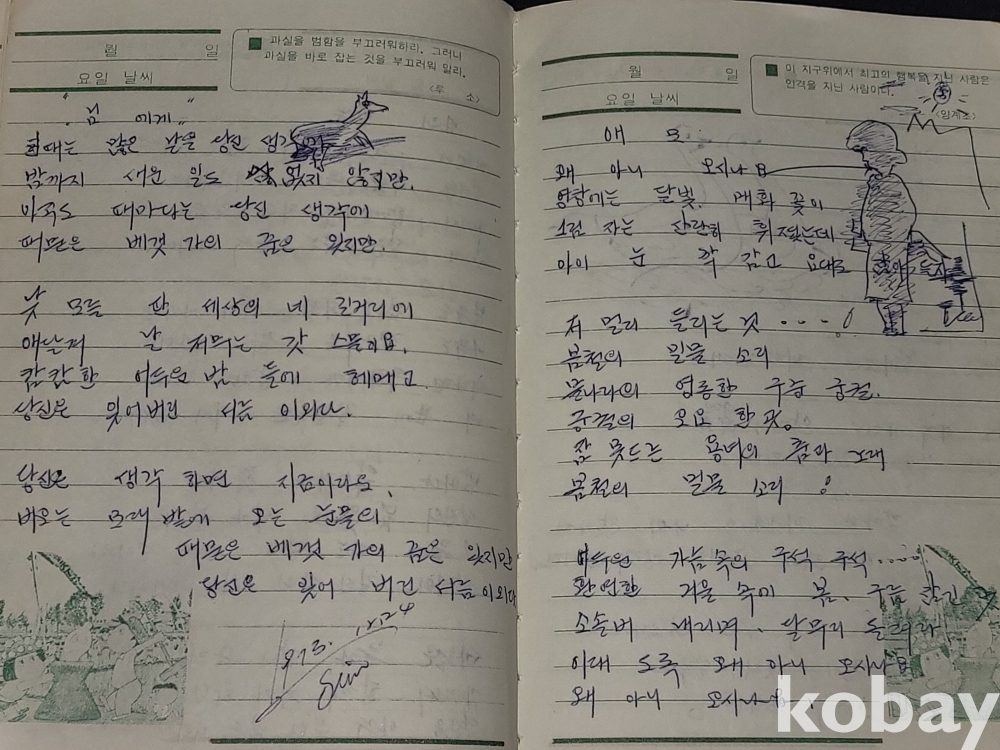 월 일
요일 날씨
과실을 범함을 부끄러워하라. 그러나
과실을 바로 잡는 것을 부끄러워 말라.
〈루 소〉
"님 에게"
한때는 많은 날을 당신 생각
밤까지 새운 일도 없지 않지만.
아직도 때마다는 당신 생각에
때묻은 베갯 가의 꿈은 있지만.
낯 모를 딴 세상의 네 길거리에
애달피 날 저무는 갓 스물이요.
캄캄한 어두운 밤 들에 헤메고
당신은 잊어버린 서름 이외다.
당신은 생각 하면 지금이라도,
비오는 모래 밭에 오는 눈물의
때묻은 베갯 가의 꿈은 있지만
당신은 잊어 버린 서름 이외다
1973. 12. 24
월 일
요일 날씨
이 지구위에서 최고의 행복을 지닌 사람은
인격을 지닌 사람이다.
애 모
왜 아니 오시나요
영창에는 달빛, 매화 꽃이
그림 자는 산란히 휘젓는데
아이 눈 꽉 감고 요대로
저 멀리 들리는 것 ....!
봄철의 밀물 소리
물나라의 영롱한 구중 궁궐.
궁궐의 오요 한 곳。
잠 못드는 용녀의 춤과 노래
봄철의 밀물 소리 !
어두운 가슴 속의 구석 구석.....
환연한 거울 속에 봄, 구름 잠긴
소솔비 내리며, 달무리 둘려라
이대 도록 왜 아니 오시나요
왜 아니 오시나요
kobay